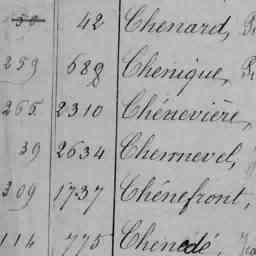 50 42 Chenard,
259 688 Chenique,
265 2310 Chénevière,
39 2634 Chennevel,
309 1737 Chénefront,
114 775 Chénedé,